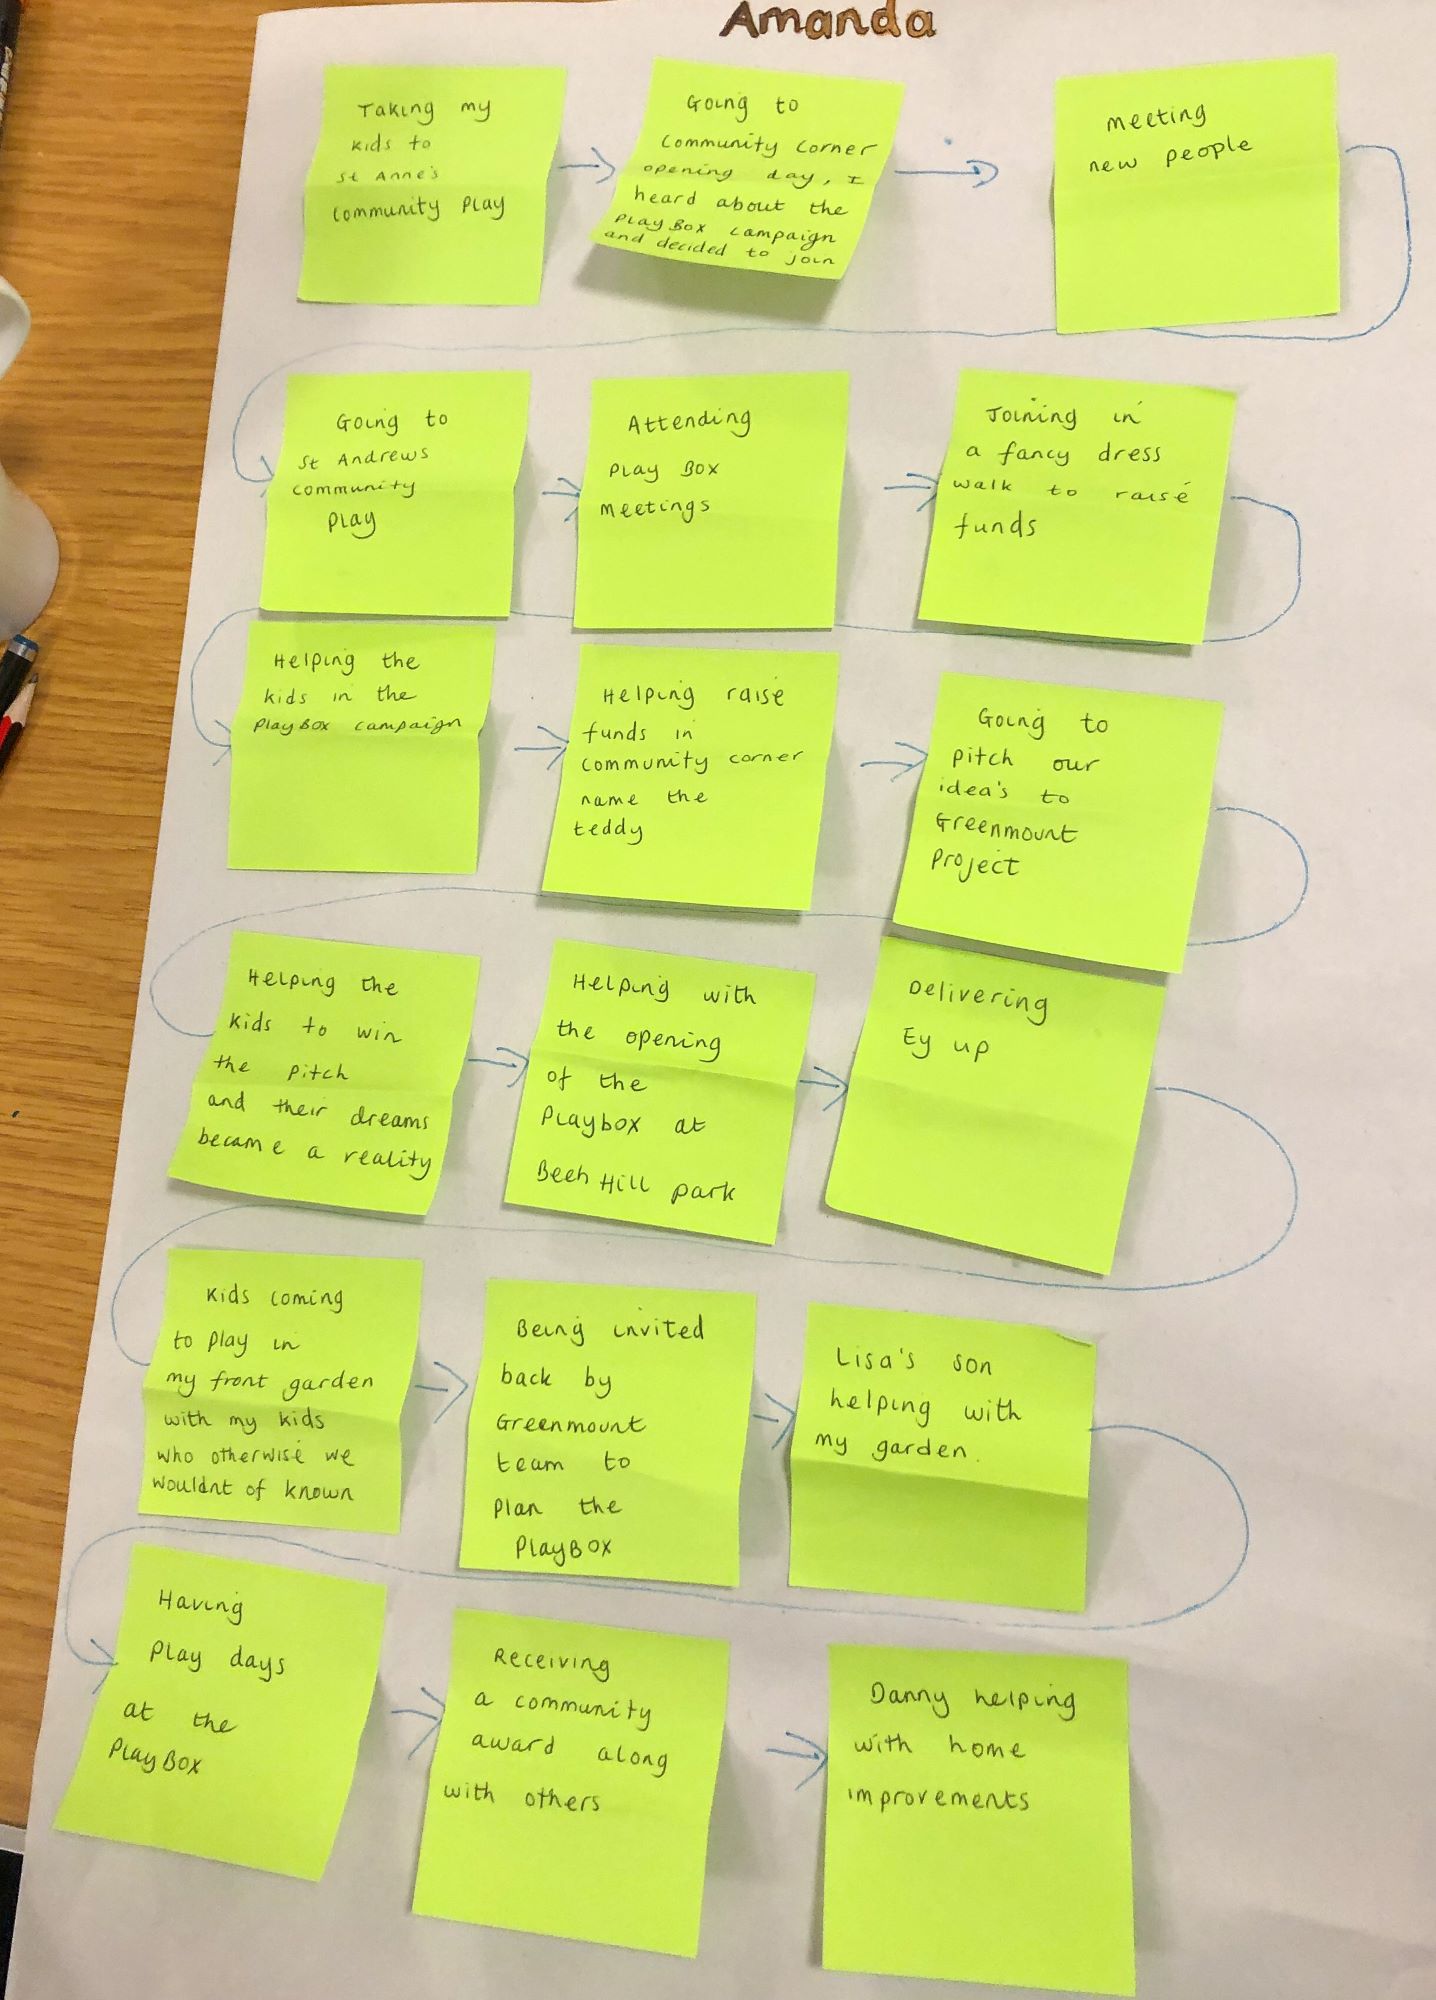 Amanda
Taking my
kids to
St Anne's
Community Play
Going to
Community Corner
opening day, I
heard about the
PlayBox campaign
and decided to join
Meeting
new people
Going to
St Andrews
Community
Play
Attending
Play Box
Meetings
Joining in
a fancy dress
walk to raise
funds
Helping the
kids in the
PlayBox campaign
Helping raise
funds in
Community corner
name the
teddy
Going to
pitch our
idea's to
Greenmount
Project
Helping the
kids to win
the pitch
and their dreams
became a reality
Helping with
the opening
of the
Playbox at
Beeh Hill park
Delivering
Ey up
Kids coming
to play in
my front garden
with my kids
who otherwise we
wouldnt of known
Being invited
back by
Greenmount
team to
plan the
PlayBox
Lisa's son
helping with
my garden.
Having
Play days
at the
PlayBox
Receiving
a community
award along
with others
Danny helping
with home
improvements